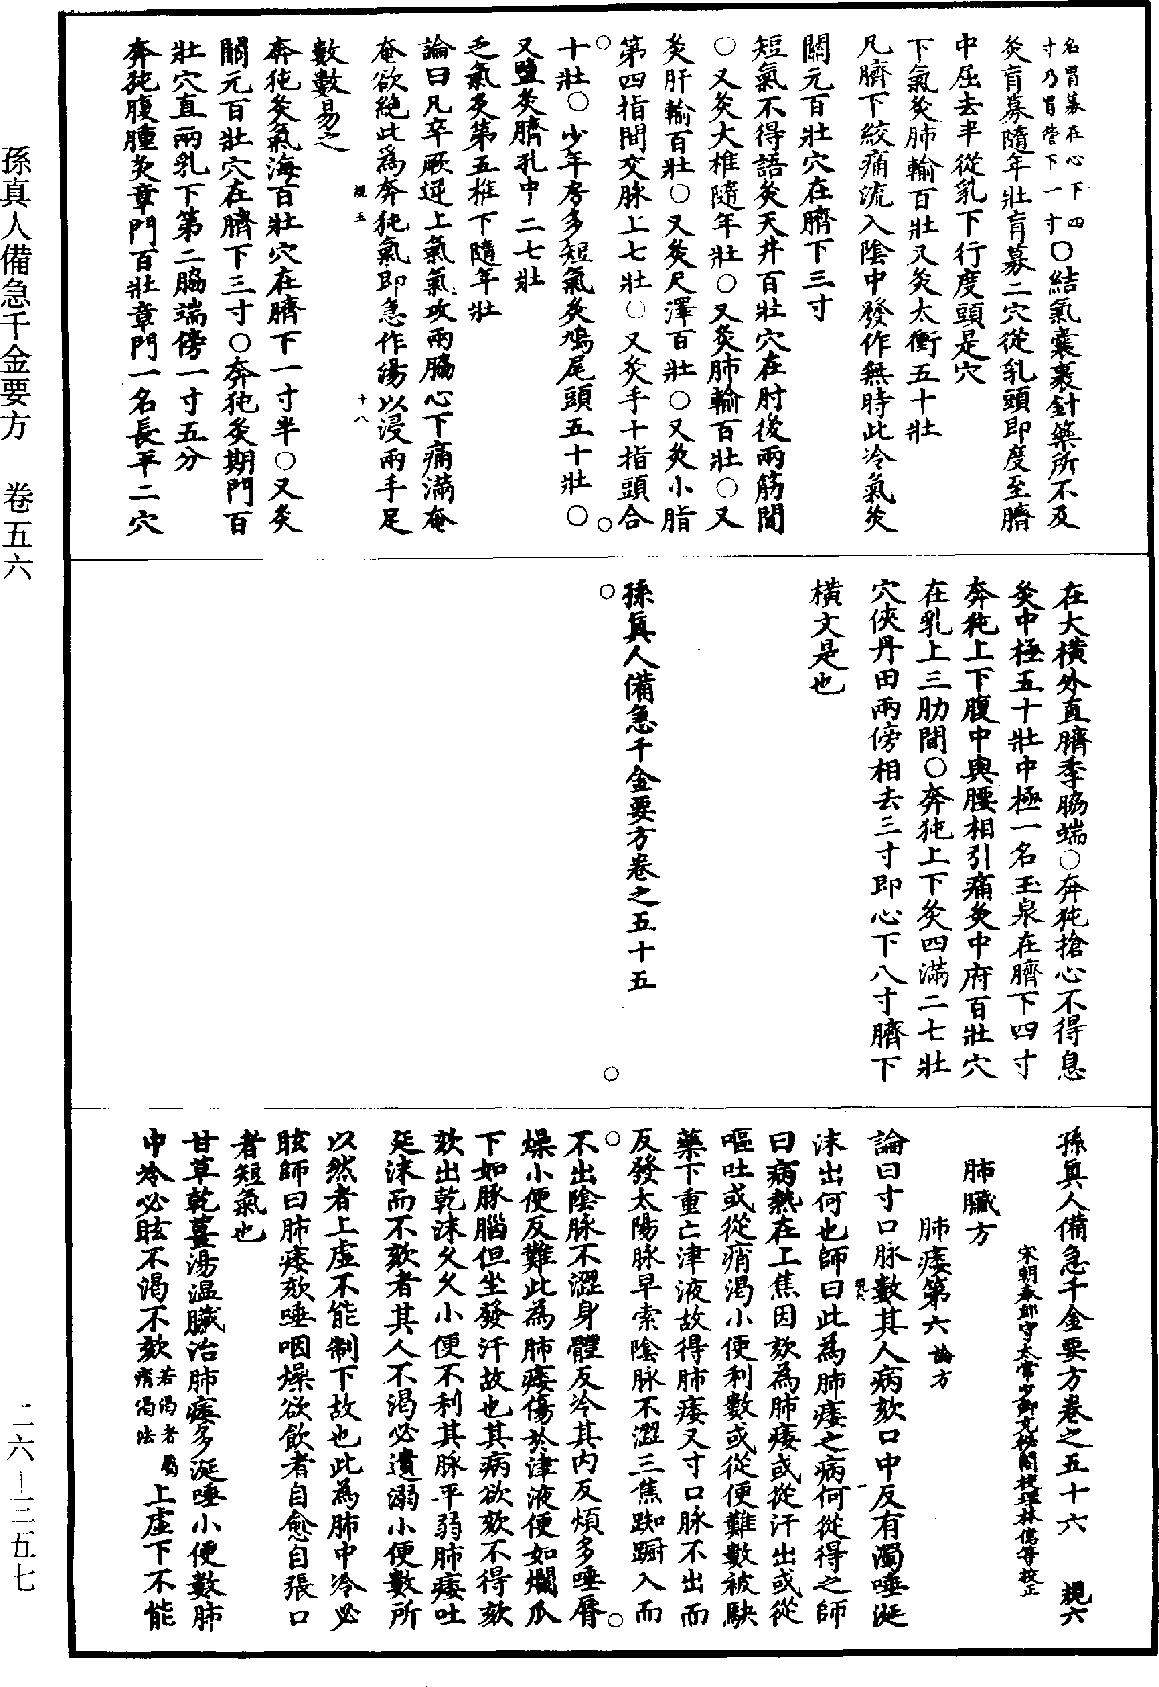 孫真人備急千金要方　卷五六
二六—三五七
名胃募在心下四
寸乃胃管下一寸〇結氣囊裹針藥所不及
灸肓募隨年壯肓募二穴從乳頭即度至臍
中屈去半從乳下行度頭是穴
下氣灸肺輸百壯又灸太衝五十壯
凡臍下絞痛流入陰中發作無時此冷氣灸
關元百壯穴在臍下三寸
短氣不得語灸天井百壯穴在肘後兩筋間
〇又灸大椎隨年壯〇又灸肺輸百壯〇又
灸肝輸百壯〇又灸尺澤百壯〇又灸小指
第四指間交脉上七壯〇又灸手十指頭合
十壯〇少年房多短氣灸鳩尾頭五十壯〇
又鹽灸臍孔中二七壯
乏氣灸第五椎下隨年壯
論曰凡卒厥逆上氣氣攻兩脇心下痛滿奄
奄欲絕此為奔㹠氣即急作湯以浸兩手足
數數易之
奔㹠灸氣海百壯穴在臍下一寸半〇又灸
關元百壯穴在臍下三寸〇奔㹠灸期門百
壯穴直兩乳下第二脇端傍一寸五分
奔㹠腹腫灸章門百壯章門一名長平二穴
在大橫外直臍季脇端〇奔㹠搶心不得息
灸中極五十壯中極一名玉泉在臍下四寸
奔㹠上下腹中與腰相引痛灸中府百壯穴
在乳上三肋間〇奔㹠上下灸四滿二七壯
穴俠丹田兩傍相去三寸即心下八寸臍下
橫文是也
孫真人備急千金要方卷之五十五
孫真人備急千金要方卷之五十六　規六
宋朝奉郎守太常少卿充秘閣校理林億等校正
肺臟方
肺痿第六論方
論曰寸口脉數其人病欬口中反有濁唾涎
沫出何也師曰此為肺痿之病何從得之師
曰病熱在上焦因欬為肺痿或從汗出或從
嘔吐或從痟渴小便利數或從便難數被駃
藥下重亡津液故得肺痿又寸口脉不出而
反發太陽脉早索陰脉不澀三焦踟躕入而
不出陰脉不澀身體反冷其內反煩多唾唇
燥小便反難此為肺痿傷於津液便如爛瓜
下如豚腦但坐發汗故也其病欲欬不得欬
欬出乾沫久久小便不利其脉平弱肺痿吐
涎沫而不欬者其人不渴必遺溺小便數所
以然者上虛不能制下故也此為肺中冷必
眩師曰肺痿欬唾咽燥欲飲者自愈自張口
者短氣也
甘草乾薑湯溫臟治肺痿多涎唾小便數肺
中冷必眩不渴不欬若渴者屬痟渴法上虛下不能